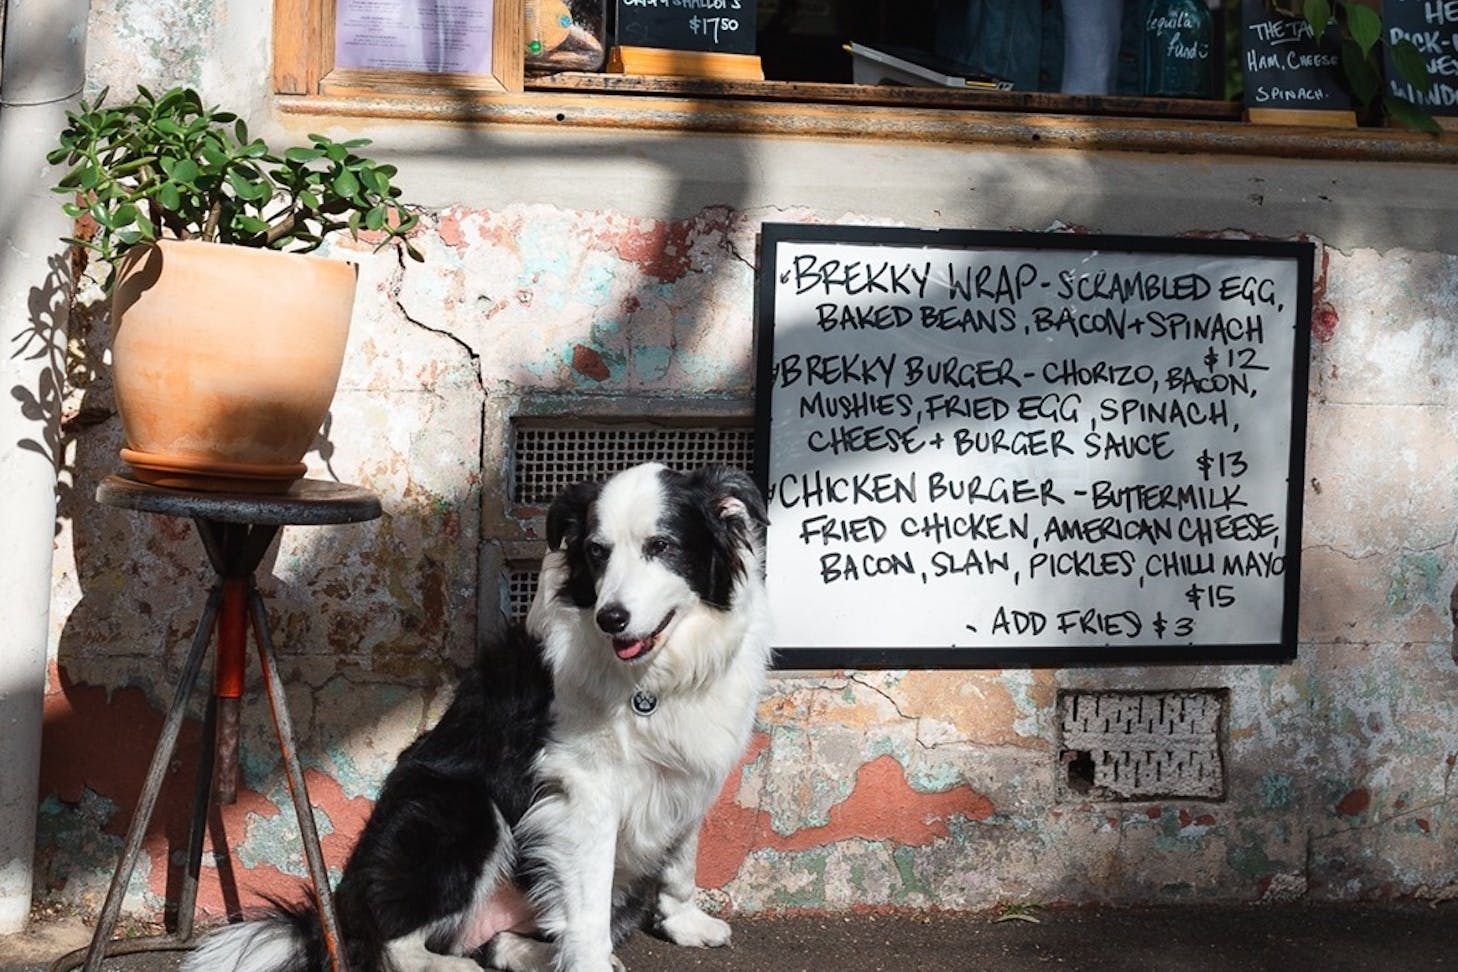 $17.50
tequila
fund
THE TA
HAM, CHEESE
SPINACH.
HE
PICK-
WINDO
BREKKY WRAP - SCRAMBLED EGG,
BAKED BEANS, BACON + SPINACH
$12
BREKKY BURGER - CHORIZO, BACON,
MUSHIES, FRIED EGG, SPINACH,
CHEESE + BURGER SAUCE
$13
CHICKEN BURGER - BUTTERMILK
FRIED CHICKEN, AMERICAN CHEESE,
BACON, SLAW, PICKLES, CHILLI MAYO
$15
- ADD FRIES $3